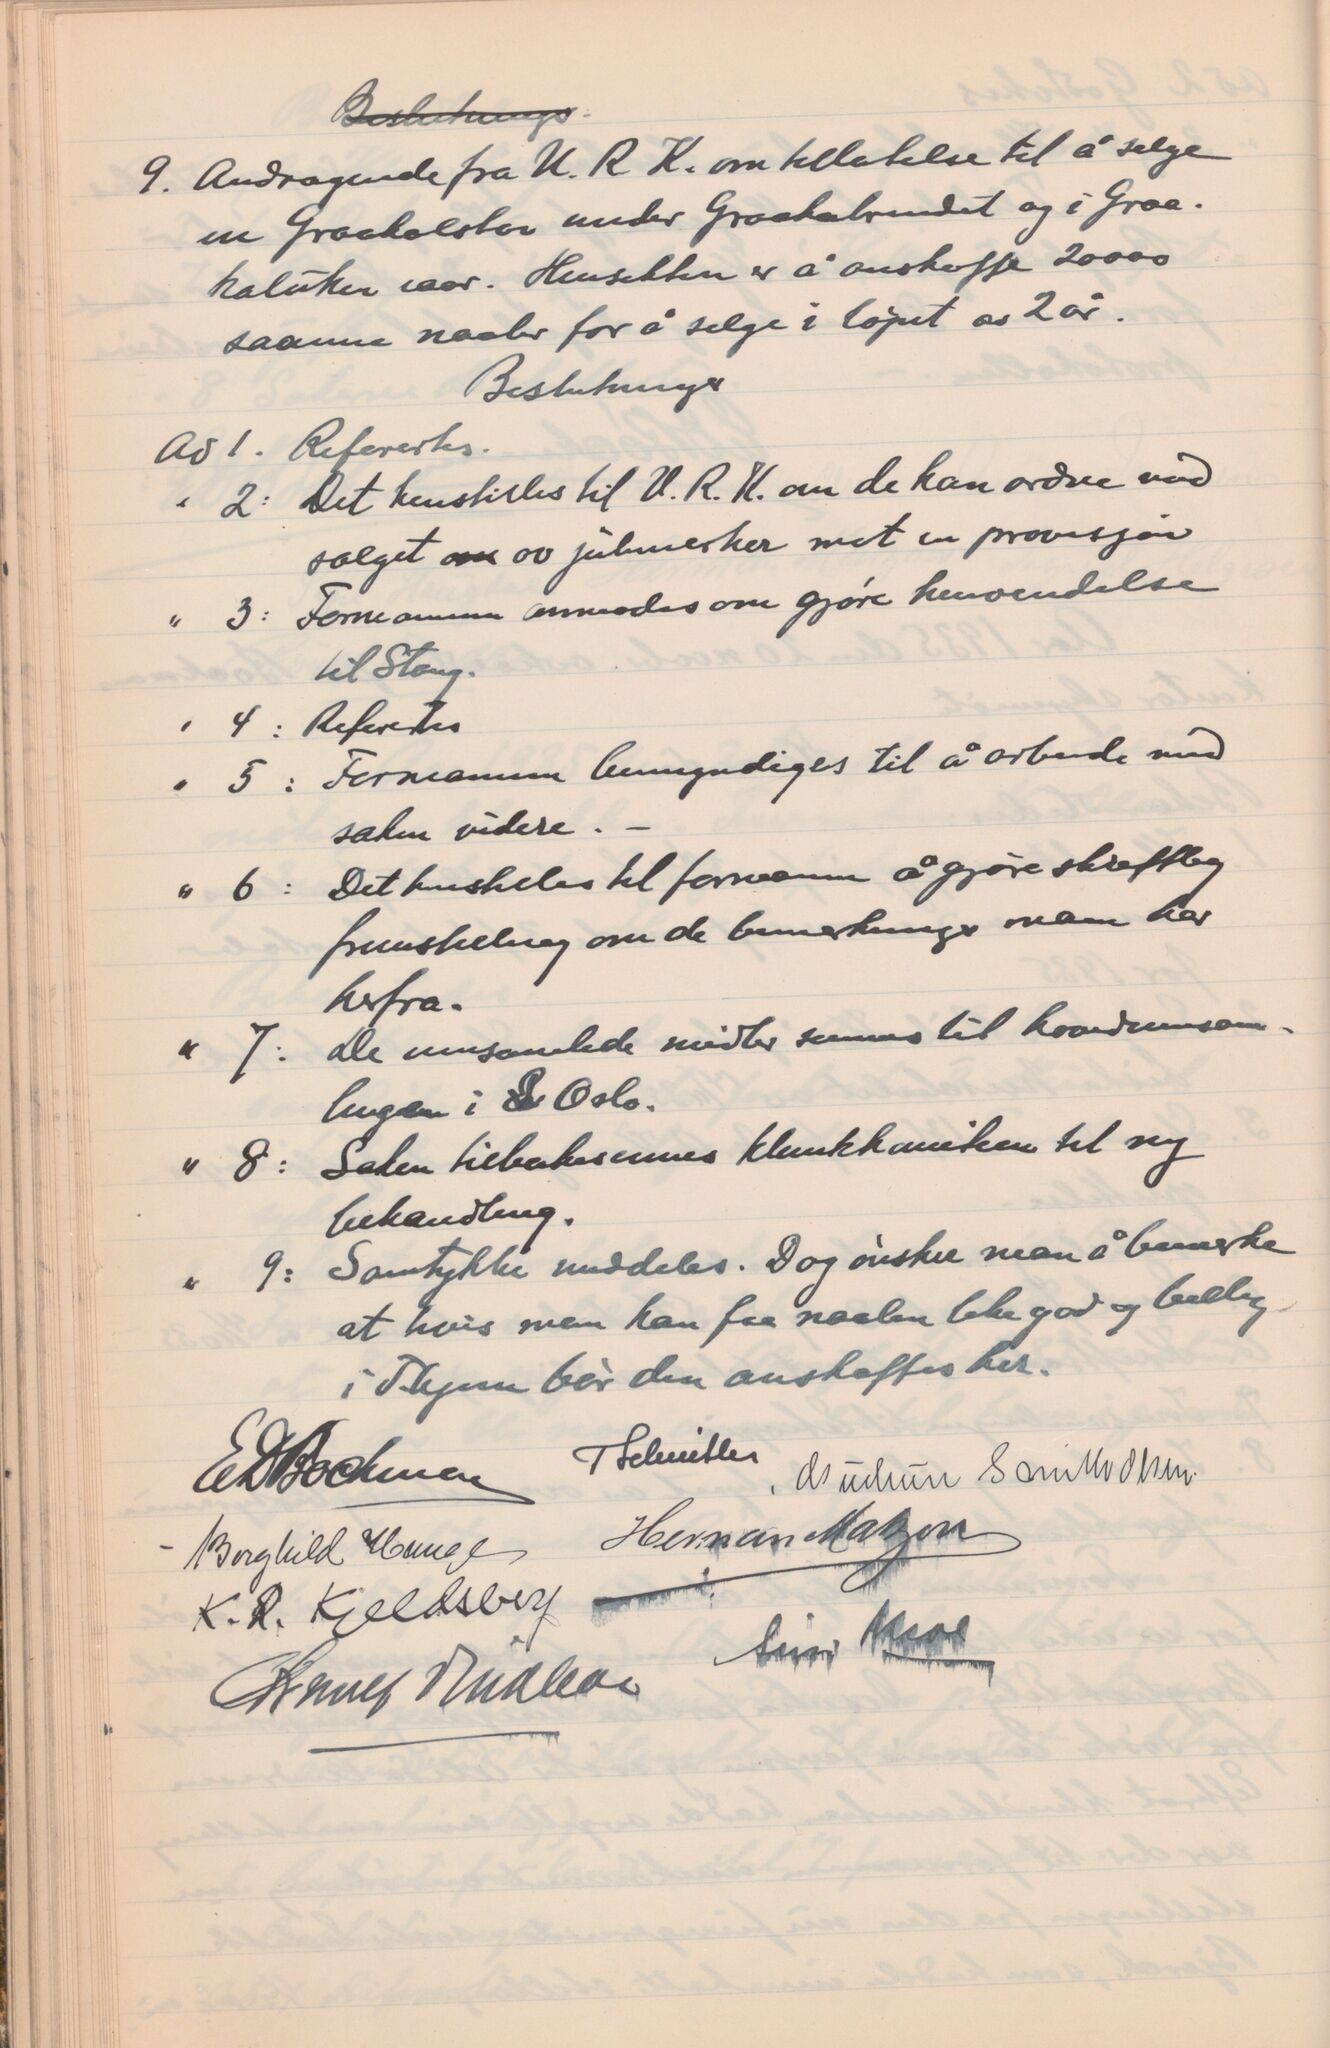 Beslutninger
9. Andragende fra U. R. K. om tillatelse til å selge
en Graakalsten under Graakalrendet og i Graa-
kaluken iaar. Hensikten er å anskaffe 20000
saanne naaler for å selge i løpet av 2 år.
Beslutninger
Ad 1. Refereres.
" 2: Det henstilles til U. R. K. om de kan ordne med
salget om av julmerker mot en provisjon
" 3: Formannen anmodes om gjøre henvendelse
til Stang.
" 4: Refereres
" 5: Formannen bemyndiges til å arbeide med
saken videre. -
" 6: Det henstilles til formann å gjøre skriftlig
fremstilling om de bemerkninger man har
herfra.
" 7: De innsamlede midler sennes til hovedinnsam-
lingen i Oslo.
" 8: Saken tilbakesennes klinikkomiteen til ny
behandling.
" 9: Samtykke meddeles. Dog ønsker man å bemerke
at hvis man kan faa naalen like god og billig
i T.hjem bør den anskaffes her.
E D Bachman T Schmitler, Gudrun
Borghild Hauge Herman Matzon
K. R. Kjeldsberg